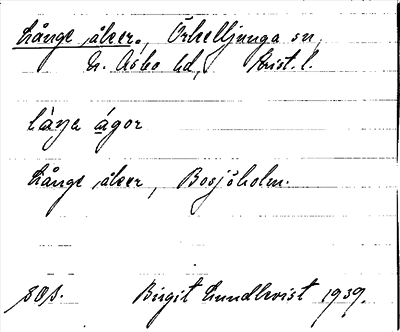 Långe åker, Örkelljunga sn,
N. Åsbo hd, Krist. l.
låŋa ågor
Långe åker, Bosjöholm.
Birgit Lundkvist 1939.